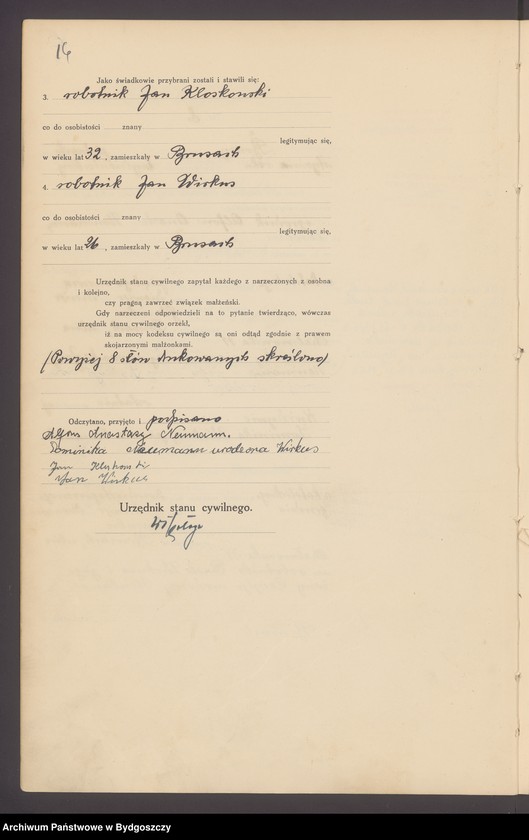 14
Jako świadkowie przybrani zostali i stawili się:
3. robotnik Jan Kloskowski
co do osobistości znany
legitymując się,
w wieku lat 32, zamieszkały w Brusach
4. robotnik Jan Wirkus
co do osobistości znany
legitymując się,
w wieku lat 26, zamieszkały w Brusach
Urzędnik stanu cywilnego zapytał każdego z narzeczonych z osobna
i kolejno,
czy pragną zawrzeć związek małżeński.
Gdy narzeczeni odpowiedzieli na to pytanie twierdząco, wówczas
urzędnik stanu cywilnego orzekł,
iż na mocy kodeksu cywilnego są oni odtąd zgodnie z prawem
skojarzonymi małżonkami.
(Powyżej 8 słów drukowanych skreślono)
Odczytano, przyjęto i podpisano
Alfons Anastazy Neumann.
Dominika Neumann urodzona Wirkus
Jan
Jan Wirkus
Urzędnik stanu cywilnego.
Archiwum Państwowe w Bydgoszczy